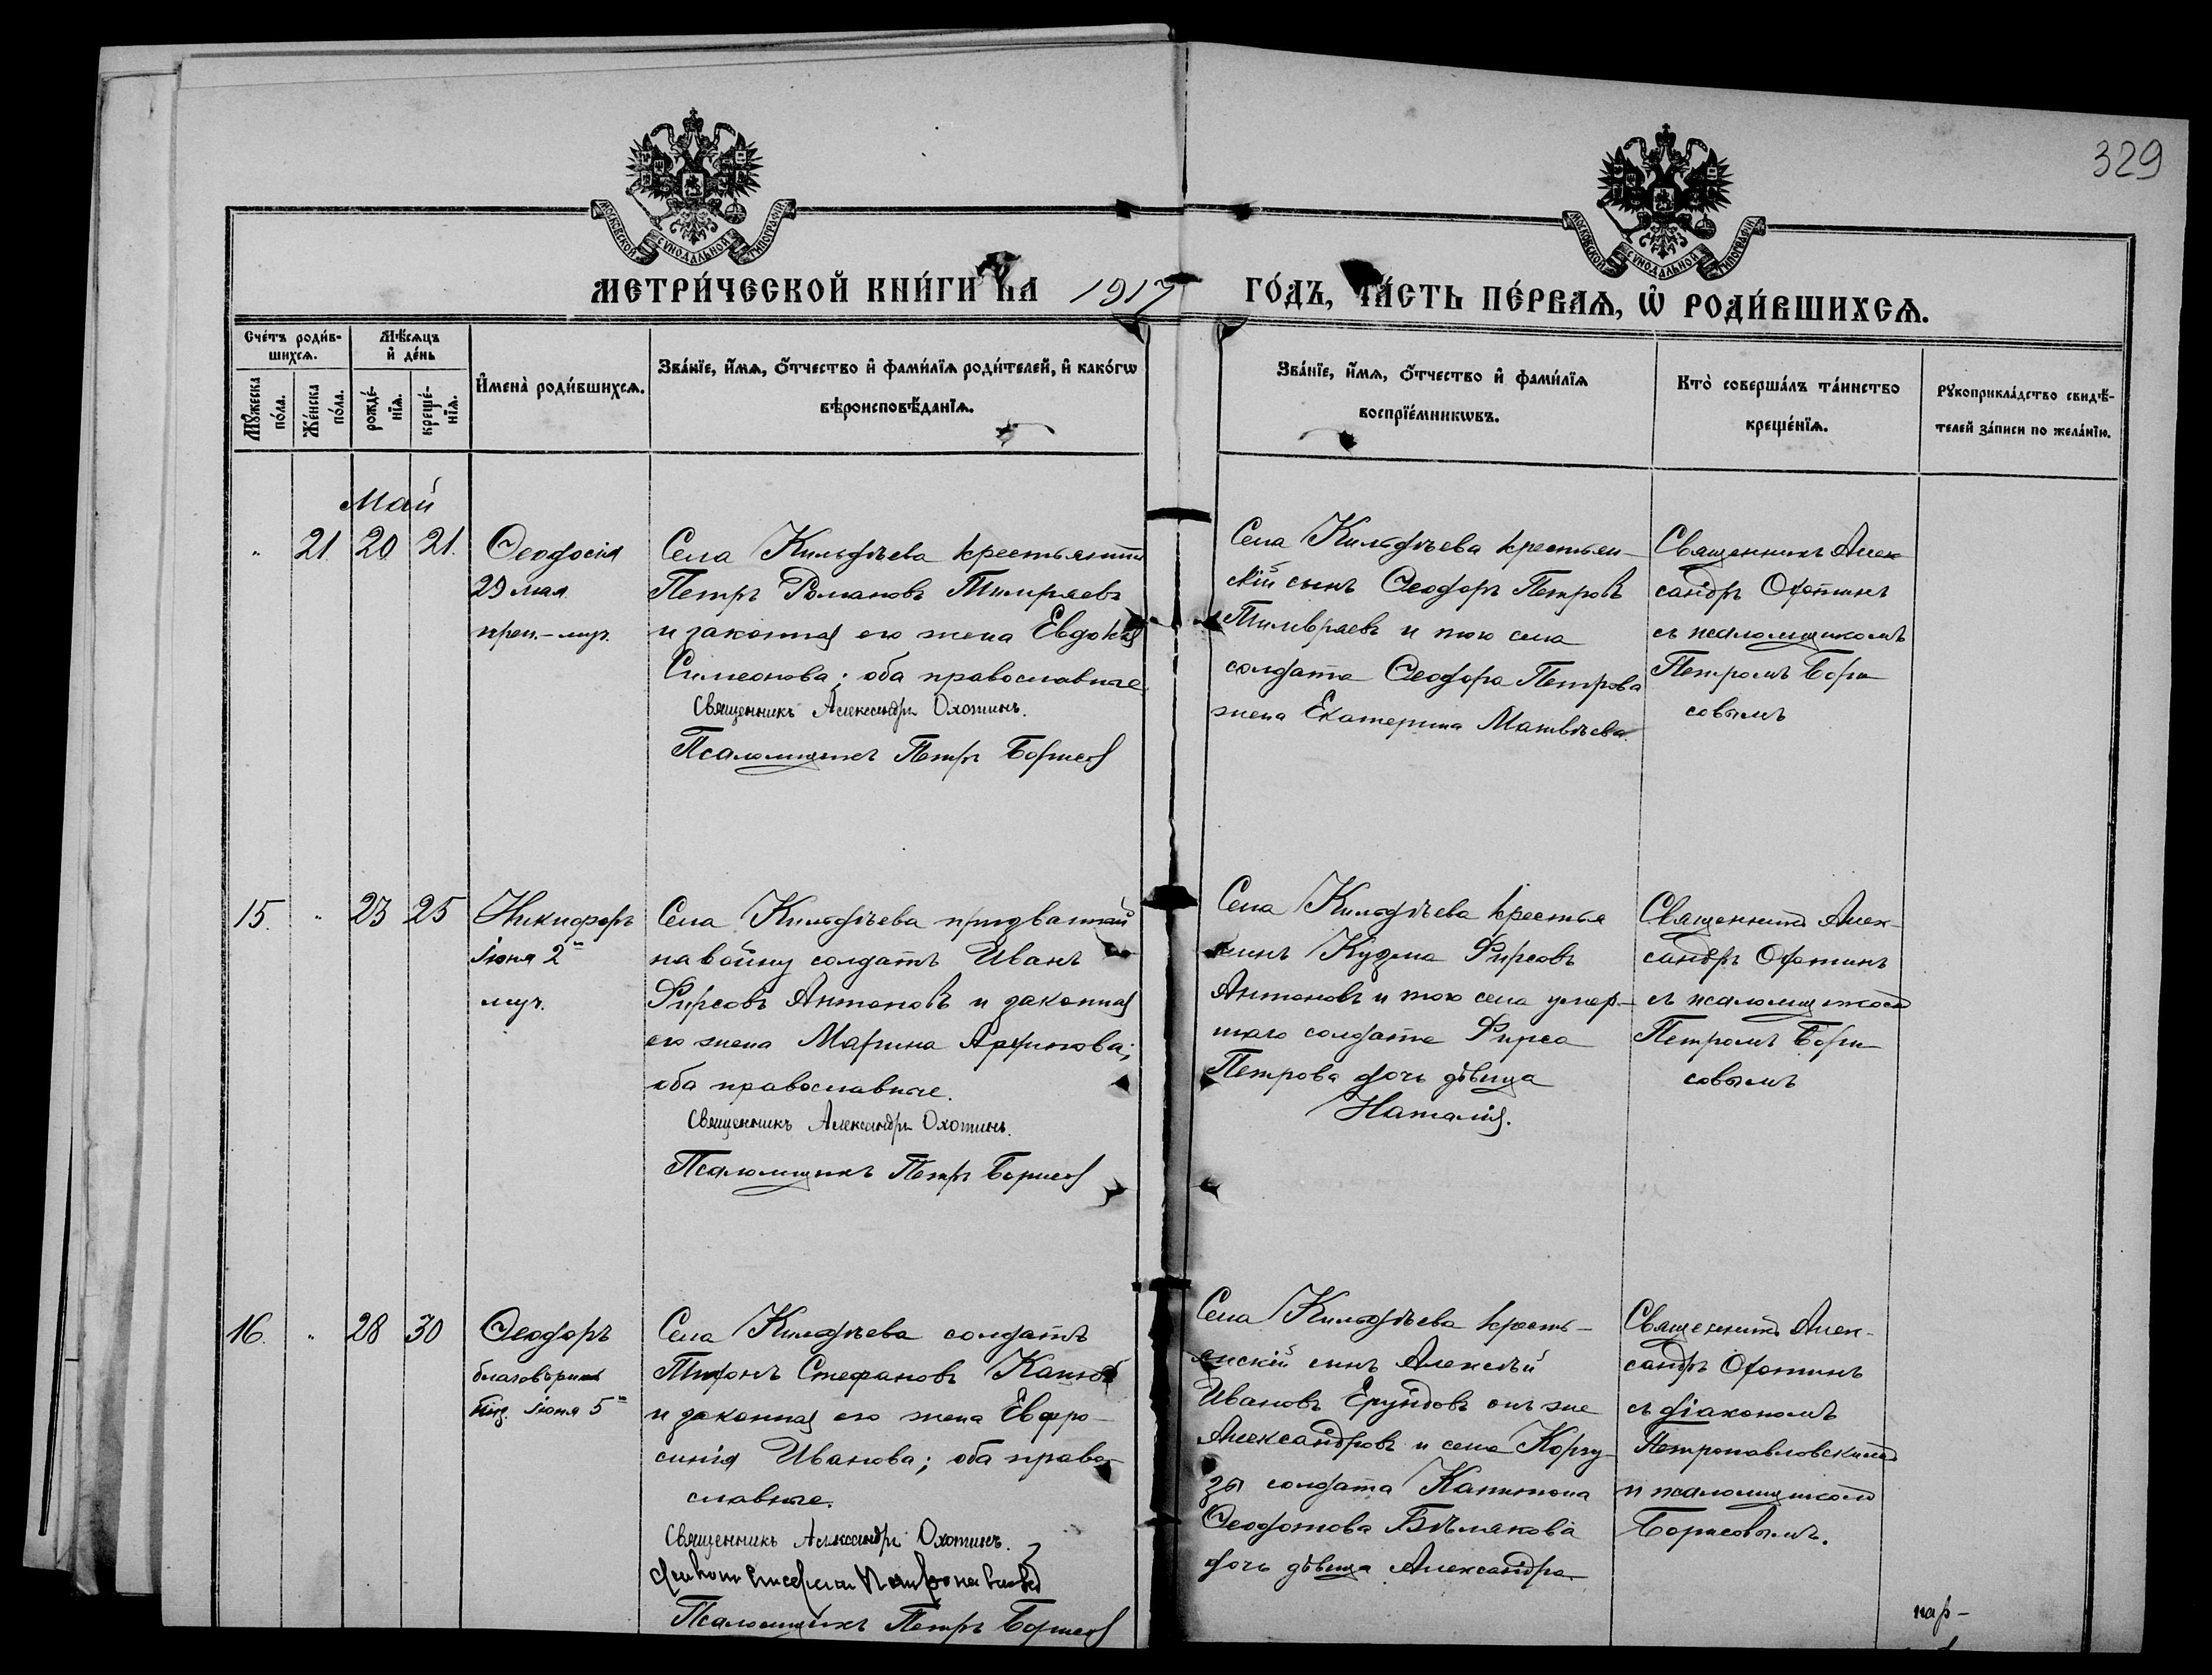 329
МОСКОВСКОЙ СѴНОДАЛЬНОЙ ТИПОГРАФІИ
МОСКОВСКОЙ СѴНОДАЛЬНОЙ ТИПОГРАФІИ
МЕТРИ́ЧЕСКОЙ КНИ́ГИ НА 1917 ГО́ДЪ, ЧА́СТЬ ПЕ́РВАѦ, Ѡ҆ РОДИ́ВШИХСѦ.
Сче́тъ роди́в-
шихсѧ.
Мꙋ́жеска
по́ла.
Же́нска
по́ла.
Мѣ́сѧцъ
и҆ де́нь
рожде́-
нїѧ.
креще́-
нїѧ.
И҆мена̀ роди́вшихсѧ.
Зва́нїе, и҆́мѧ, ѻ҆́тчество и҆ фами́лїѧ роди́телей, и҆ како́гѡ
вѣроисповѣ́данїѧ.
Зва́нїе, и҆́мѧ, ѻ҆́тчество и҆ фами́лїѧ
воспрїе́мникѡвъ.
Кто̀ соверша́лъ та́инство
креще́нїѧ.
Рꙋкоприкла́дство свидѣ́-
телей за́писи по жела́нїю.
Май
" 21. 20 21.
Ѳеодосія
29 мая
преп.-муч.
Села Кильдѣева крестьянинъ
Петръ Романовъ Тимиряевъ
и законная его жена Евдокія
Симеонова; оба православные
Священникъ Александръ Охотинъ.
Псаломщикъ Петръ Борисов
Села Кильдѣева крестьян-
скій сынъ Ѳеодоръ Петровъ
и того села
солдата Ѳеодора Петрова
жена Екатерина Матвѣева.
Священникъ Алек
сандръ Охотинъ
съ псаломщикомъ
Петромъ Бори
совымъ
15. " 23 25
Никифоръ
іюня 2
муч.
Села Кильдѣева призванный
на войну солдатъ Иванъ
Фирсовъ Антоновъ и законная
его жена Марина
оба православные.
Священникъ Александръ Охотинъ.
Псаломщикъ Петръ Борисов
Села Кильдѣева крестья
нинъ Кузма Фирсовъ
Антоновъ и того села умер-
шаго солдата Фирса
Петрова дочь дѣвица
Наталія.
Священникъ Алек-
сандръ Охотинъ
съ псаломщикомъ
Петромъ Бори-
совымъ
16. " 28 30
Ѳеодоръ
благовѣрный
кнз. іюня 5
Села Кильдѣева солдатъ
Стефановъ
и законная его жена Евфро-
синія Иванова; оба право-
славные.
Священникъ Александръ Охотинъ.
Псаломщикъ Петръ Борисов
Села Кильдѣева кресть-
янскій сынъ Алексѣй
Ивановъ онъ же
Александровъ и села Коргу-
зы солдата Капитона
дочь дѣвица Александра
Священникъ Алек-
сандръ Охотинъ
съ діакономъ
Петропавловскимъ
и псаломщикомъ
Борисовымъ.